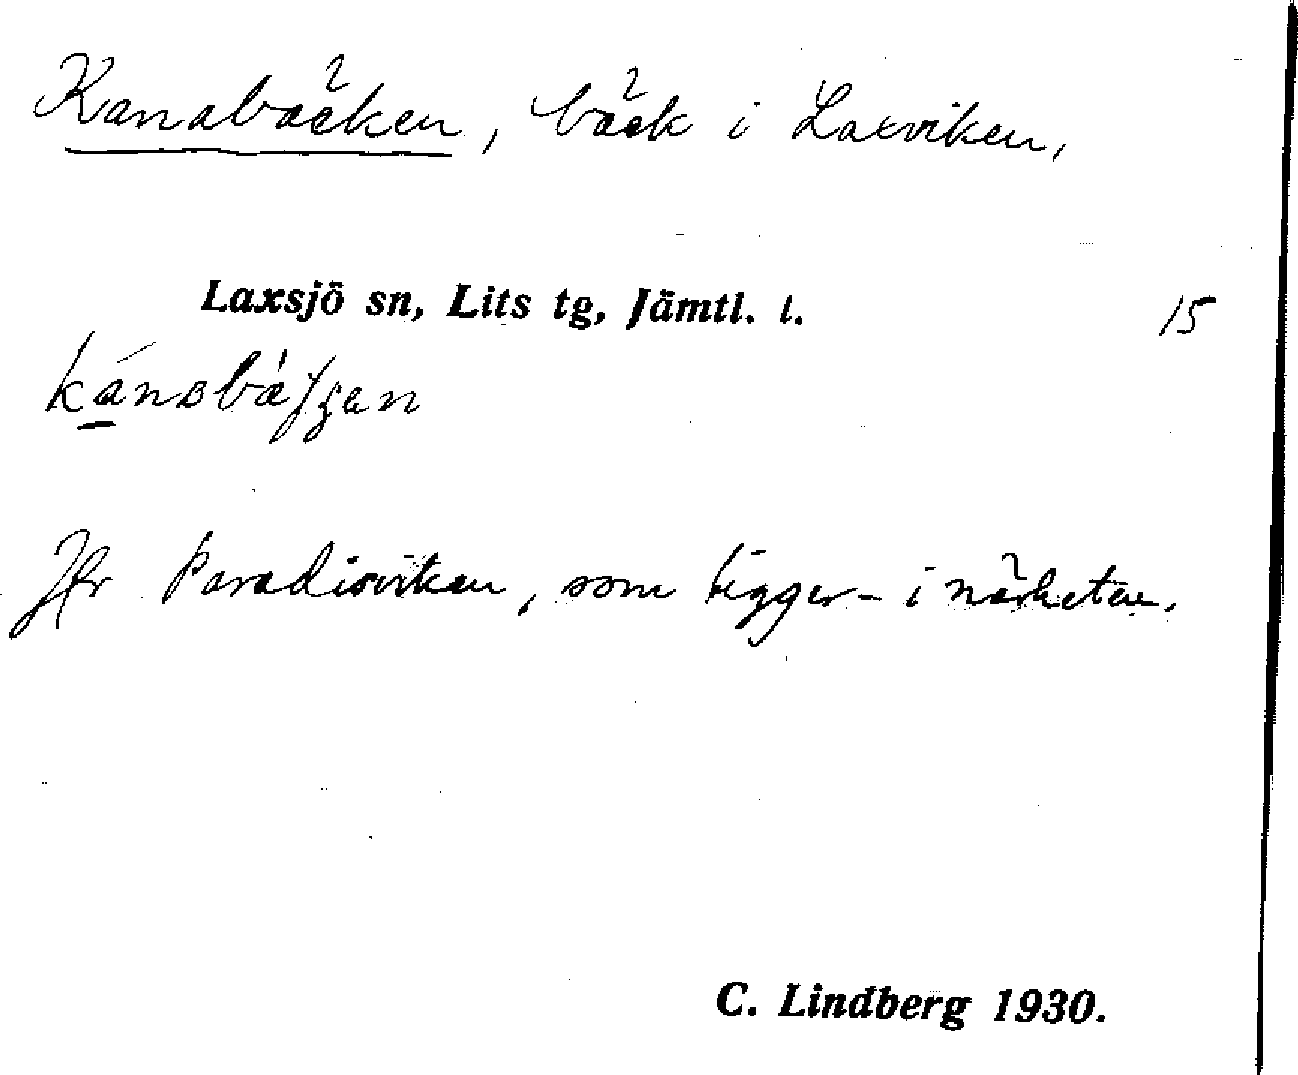 Kanabäcken, bäck i Laxviken,
Laxsjö sn, Lits tg, Jämtl. l.
15
Jfr Paradisviken, som ligger i närheten.
C. Lindberg 1930.